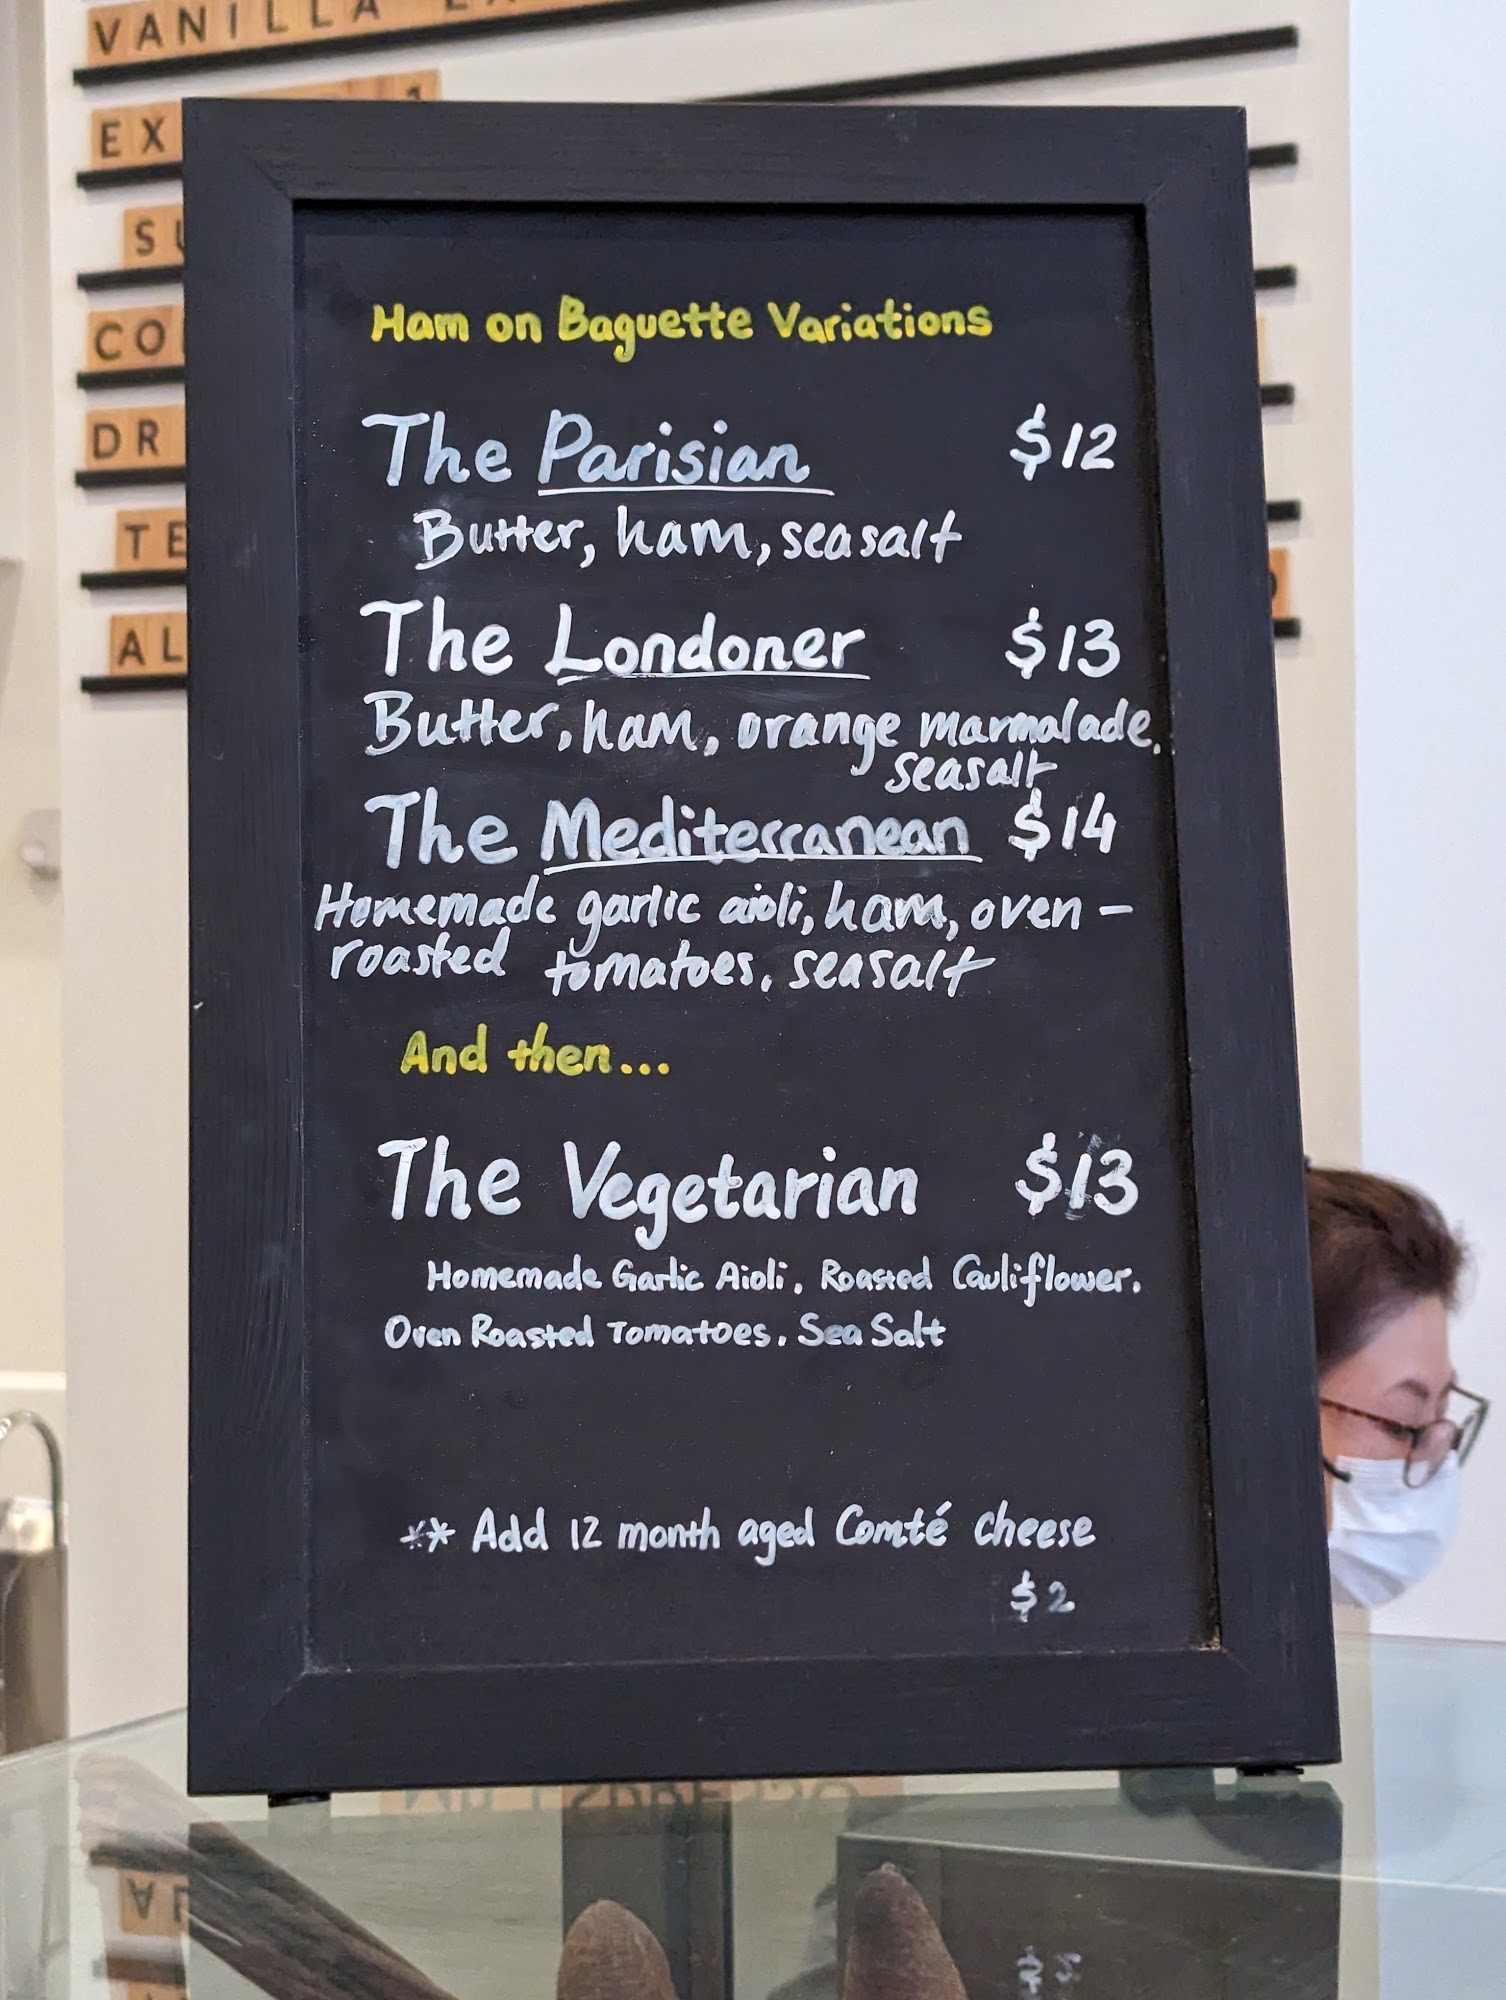 VANILLA
EX
SU
CO
DR
TE
AL
Ham on Baguette Variations
The Parisian $12
Butter, ham, seasalt
The Londoner $13
Butter, ham, orange marmalade,
seasalt
The Mediterranean $14
Homemade garlic aioli, ham, oven-
roasted tomatoes, seasalt
And then...
The Vegetarian $13
Homemade Garlic Aioli, Roasted Cauliflower,
Oven Roasted Tomatoes, Sea Salt
** Add 12 month aged Comté cheese
$2